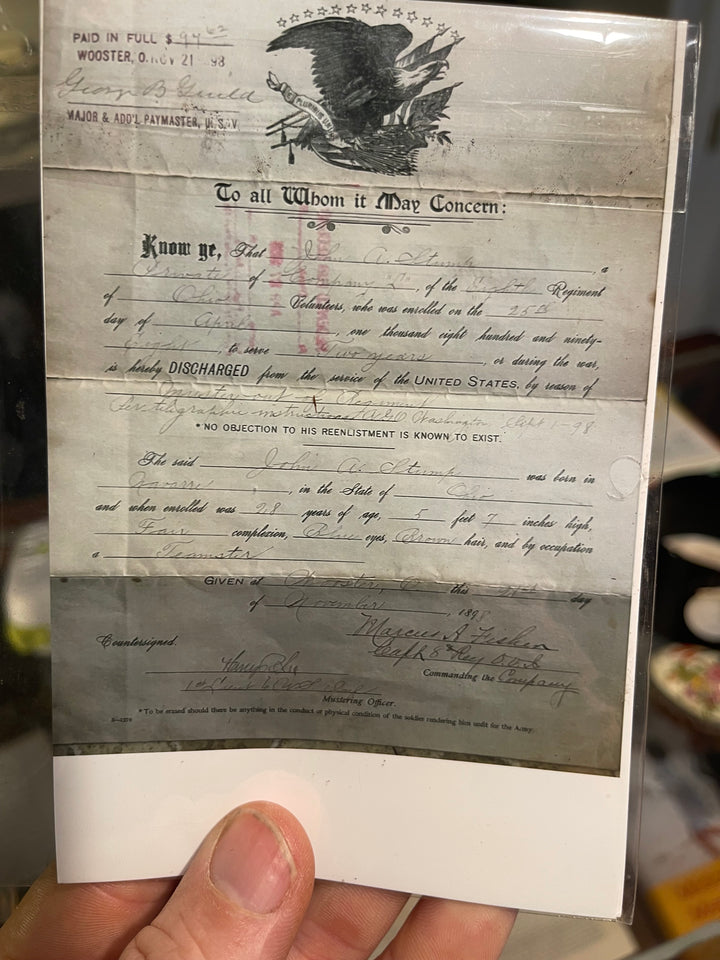 PAID IN FULL $ 97.62
WOOSTER, O. NOV 21 98
George B Guild
MAJOR & ADD'L PAYMASTER, U. S. V.
E PLURIBUS UNUM
To all Whom it May Concern:
Know ye, That John A. Stump, a
Private of Company "D", of the Eighth Regiment
of Ohio Volunteers, who was enrolled on the 25th
day of April, one thousand eight hundred and ninety-
eight, to serve Two years, or during the war,
is hereby DISCHARGED from the service of the UNITED STATES, by reason of
muster out of Regiment
per telegraphic instructions A.G.O Washington, Sept 1-98
* NO OBJECTION TO HIS REENLISTMENT IS KNOWN TO EXIST.
The said John A. Stump was born in
Navarre, in the State of Ohio
and when enrolled was 28 years of age, 5 feet 7 inches high,
Fair complexion, Blue eyes, Brown hair, and by occupation
a Teamster
GIVEN at Wooster, O. this 21st day
of November, 1898
Marcus A Fisher
Capt 8" Reg O.V.I
Countersigned. Commanding the Company
1st Lieut
Mustering Officer.
* To be erased should there be anything in the conduct or physical condition of the soldier rendering him unfit for the Army.